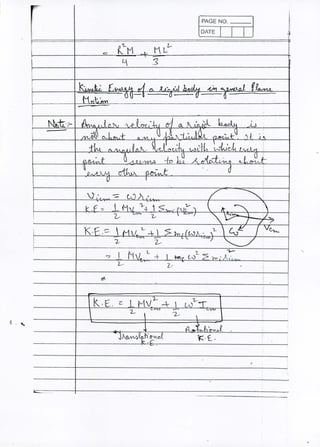 PAGE NO.
DATE
= R²M/4 + ML²/3
Kinetic Energy of a rigid body in general Plane
Motion
Note:- Angular velocity of a rigid body is
not about any particular point. It is
the angular velocity with which every
point seems to be rotating about
every other point.
Vicm = ωricm
K.E = 1/2 MVcm² + 1/2 Σmi(Vicm²)
K.E. = 1/2 MVcm² + 1/2 Σmi(ωricm)²
= 1/2 MVcm² + 1/2 ω² Σmiricm²
ricm
ω
Vcm
K.E. = 1/2 MVcm² + 1/2 ω² Icm
Translational K.E.
Rotational K.E.